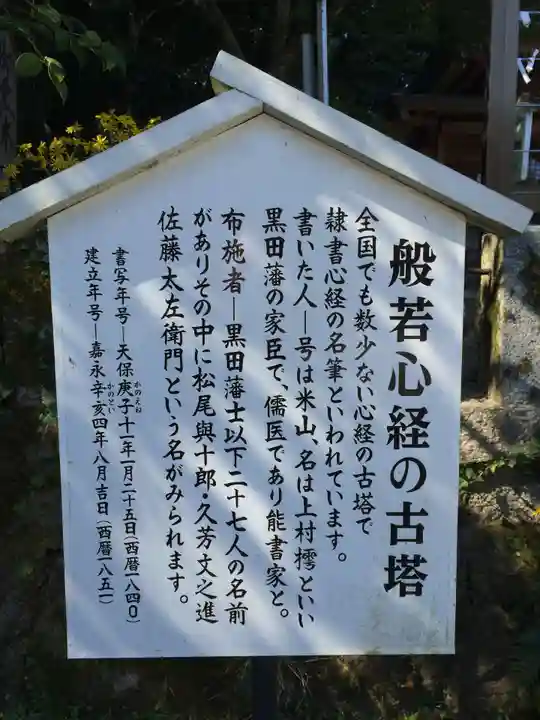 般若心経の古塔
全国でも数少ない心経の古塔で
隷書心経の名筆といわれています。
書いた人―号は米山、名は上村樗といい
黒田藩の家臣で、儒医であり能書家と。
布施者―黒田藩士以下二十七人の名前
がありその中に松尾與十郎・久芳文之進
佐藤太左衛門という名がみられます。
書写年号―天保庚子十一年一月二十五日(西暦一八四〇)
かのえね
建立年号―嘉永辛亥四年八月吉日(西暦一八五一)
かのとい